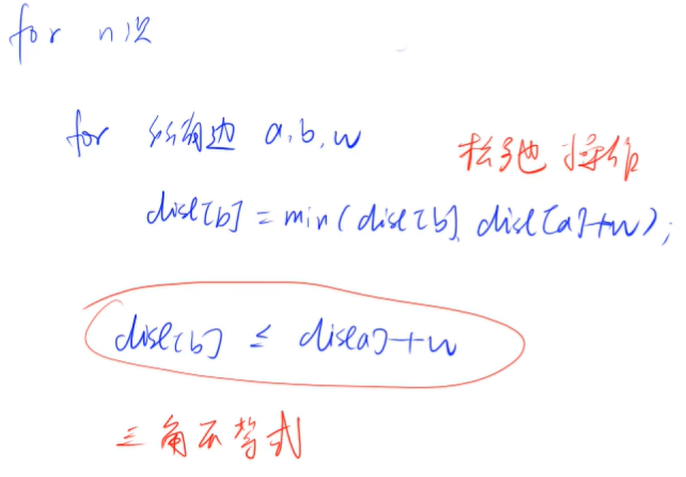 for n次
for 所有边 a,b,w
松弛操作
dist[b] = min(dist[b], dist[a]+w);
dist[b] ≤ dist[a]+w
三角不等式